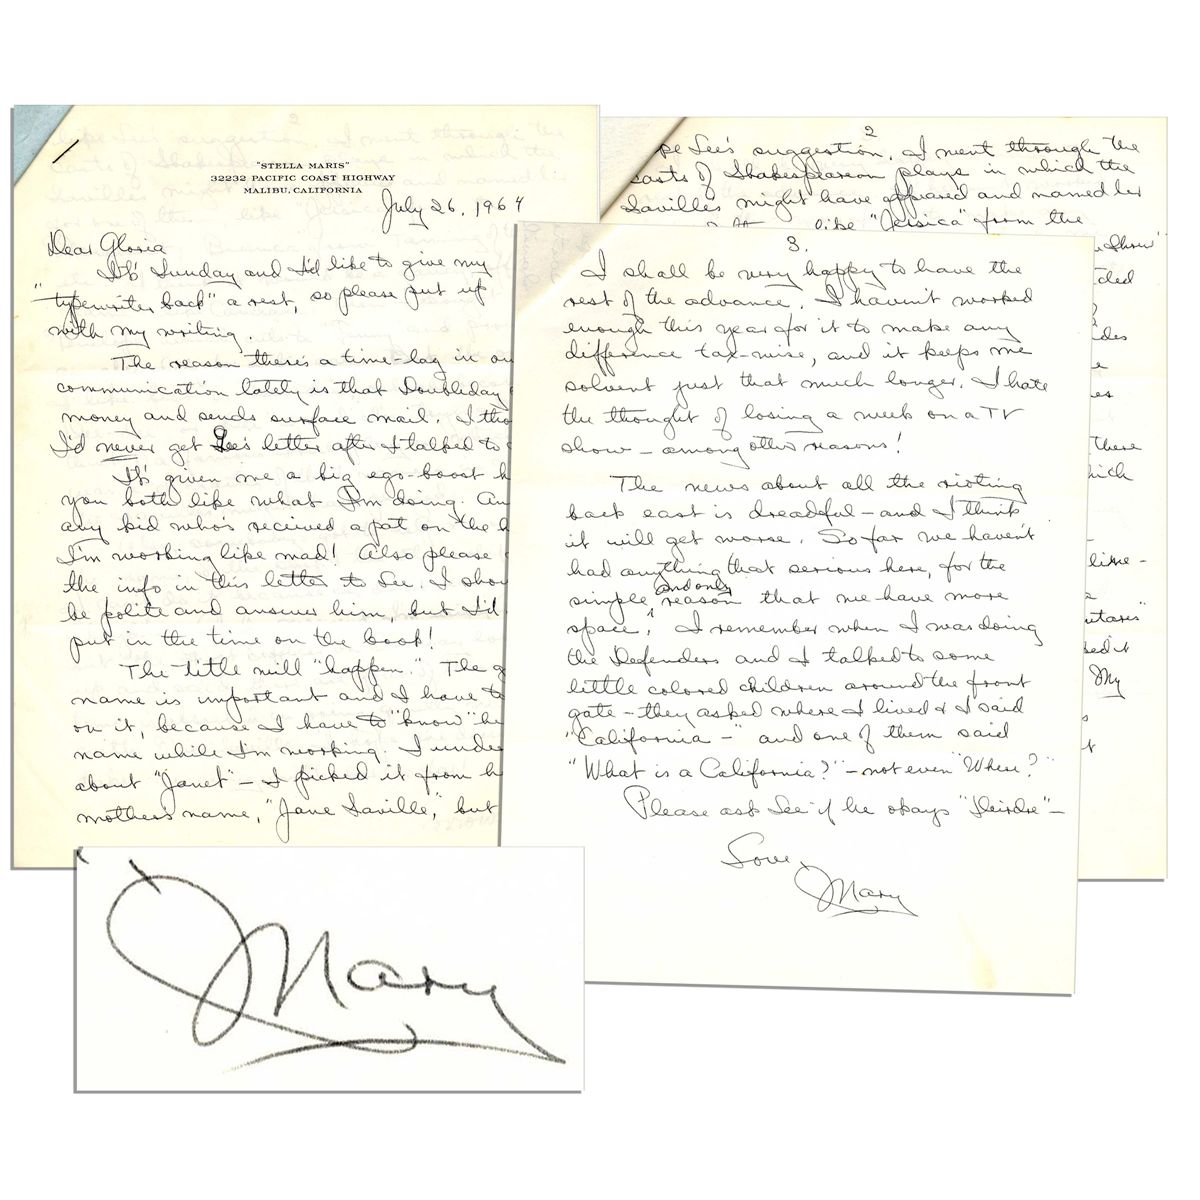 "STELLA MARIS"
32232 PACIFIC COAST HIGHWAY
MALIBU, CALIFORNIA
July 26, 1964
Dear Gloria
It's Sunday and I'd like to give my
"typewriter back" a rest, so please put up
with my writing.
The reason there's a time-lag in our
communication lately is that Doubleday
money and sends surface mail. I tho
I'd never get Lee's letter after I talked to
It's given me a big ego-boost
you both like what I'm doing. An
any kid who's recived a pat on the h
I'm working like mad! Also please
the info in this letter to Lee. I shou
be polite and answer him, but I'd
put in the time on the book!
The title will "happen." The g
name is important and I have to
on it, because I have to "know" he
name while I'm working. I unde
about "Janet" - I picked it from h
mothers name, "Jane Saville," but
2
pe Lee's suggestion. I went through the
casts of Shakespearean plays in which the
Savilles might have appeared and named her
like "Jessica" from the
Show"
ded
des
es
there
hich
line-
utares"
sed it
My
3.
I shall be very happy to have the
rest of the advance. I haven't worked
enough this year for it to make any
difference tax-wise, and it keeps me
solvent just that much longer. I hate
the thought of losing a week on a TV
show - among other reasons!
The news about all the rioting
back east is dreadful - and I think
it will get worse. So far we haven't
had anything that serious here, for the
simple and only reason that we have more
space. I remember when I was doing
the Defenders and I talked to some
little colored children around the front
gate - they asked where I lived & I said
"California -" and one of them said
"What is a California?" - not even "Where?"
Please ask Lee if he okays "Deirdre" -
Love,
Mary
Mary